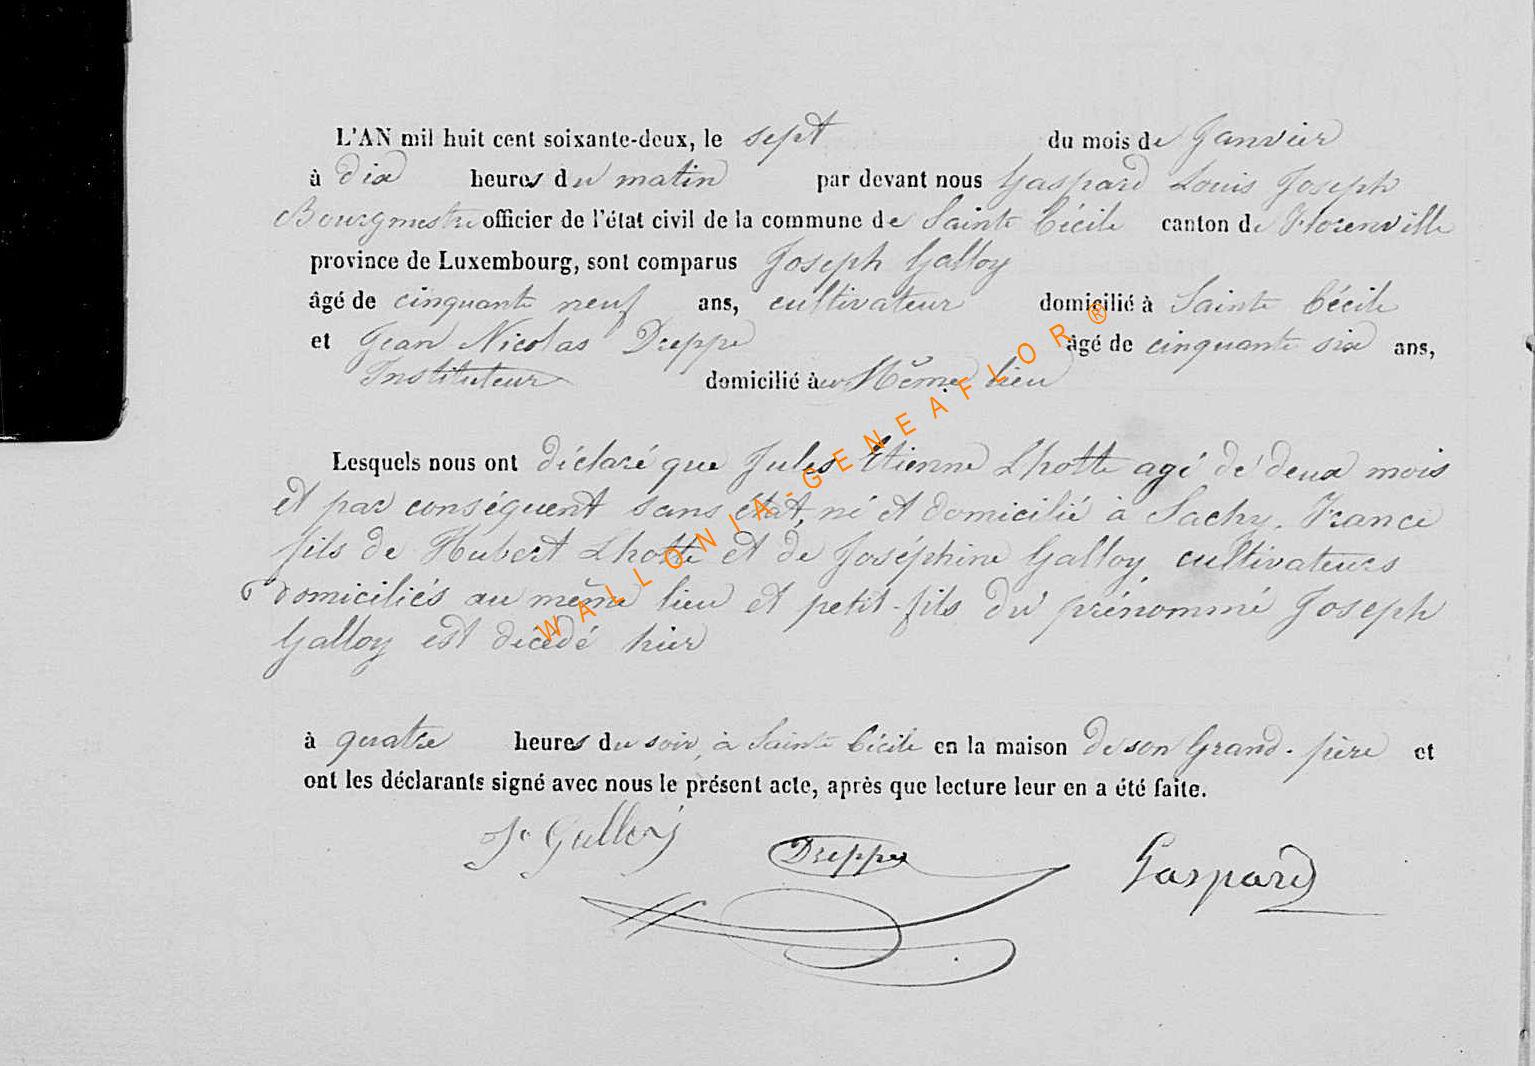 L'AN mil huit cent soixante-deux, le sept du mois de Janvier
à dix heures du matin par devant nous Gaspard Louis Joseph
Bourgmestre officier de l'état civil de la commune de Sainte Cécile canton de Florenville
province de Luxembourg, sont comparus Joseph Galloy
âgé de cinquante neuf ans, cultivateur domicilié à Sainte Cécile
et Jean Nicolas Dreppe âgé de cinquante six ans,
Instituteur domicilié au Même lieu
Lesquels nous ont déclaré que Jules Etienne Lhotte agé de deux mois
et par conséquent sans état, né et domicilié à Sachy, France
fils de Hubert Lhotte et de Joséphine Galloy cultivateurs
domiciliés au même lieu et petit-fils du prénommé Joseph
Galloy est décédé hier
à quatre heures du soir, à Sainte Cécile en la maison de son Grand-père et
ont les déclarants signé avec nous le présent acte, après que lecture leur en a été faite.
Js Galloy Dreppe Gaspard
WALLONIA-GENEAFLOR ®